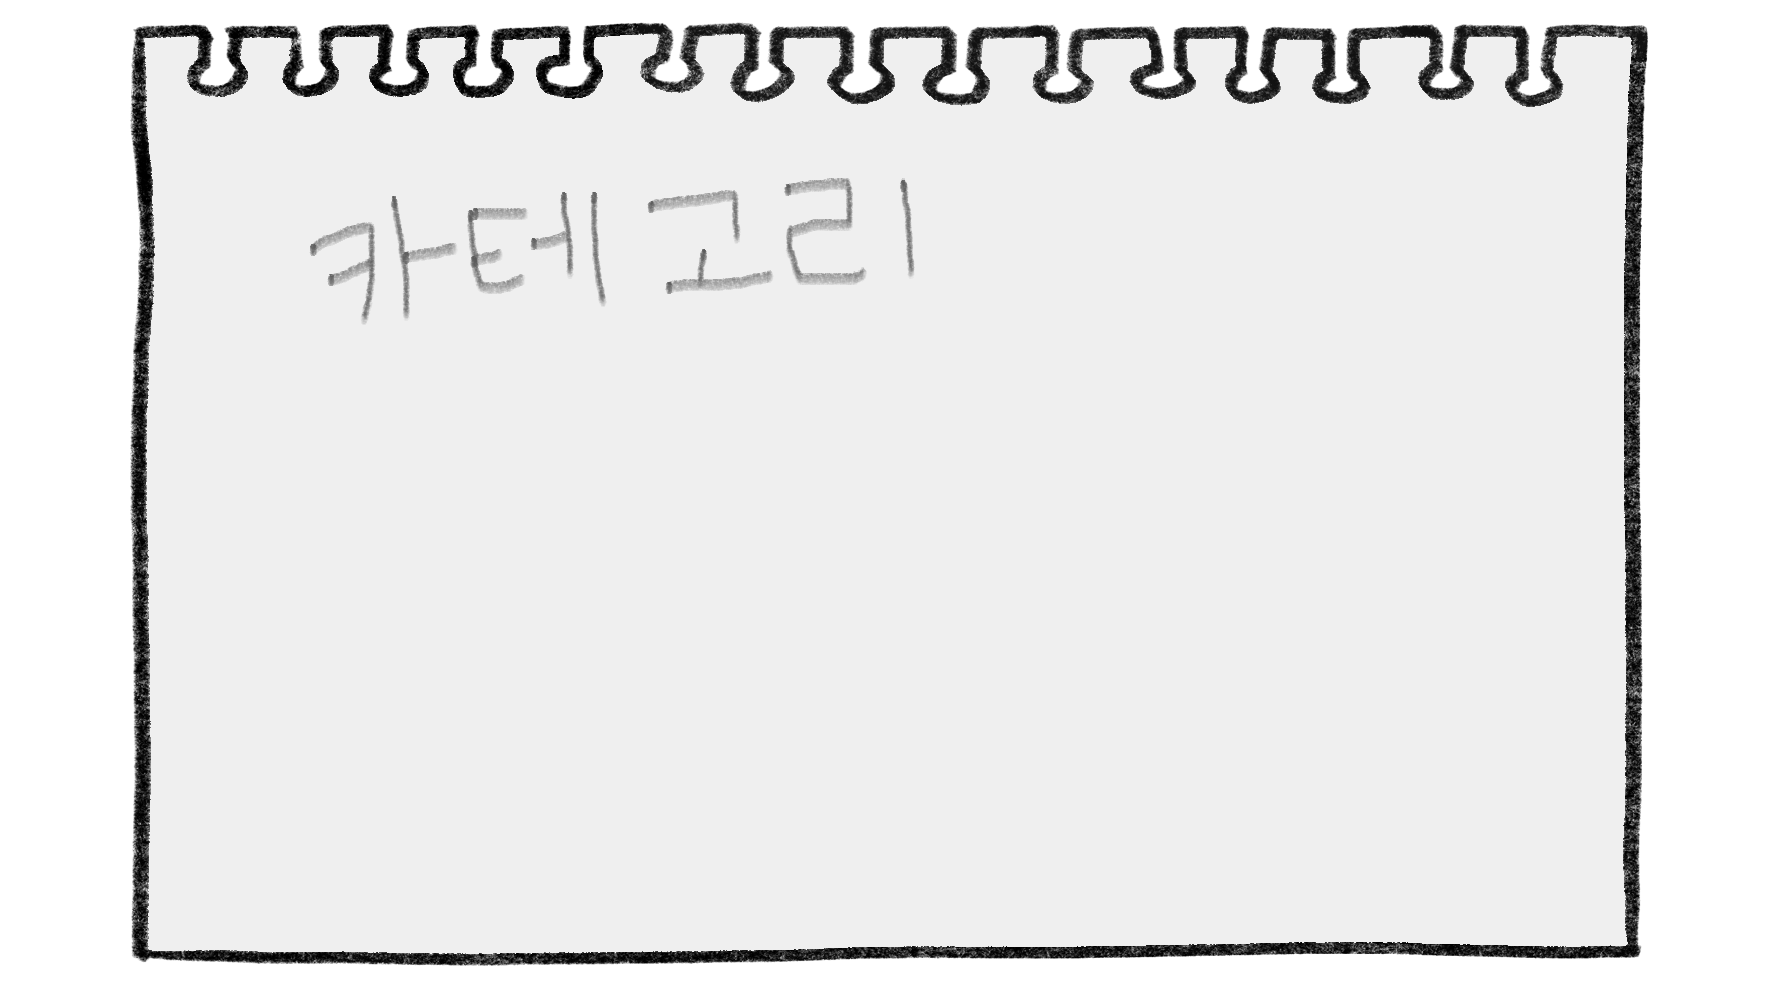 카테고리